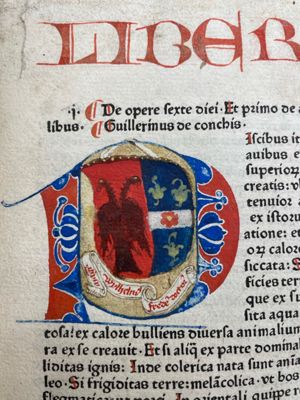 LIBER
.j. ¶ De opere sexte diei. Et primo de a
libus. ¶ Guillerinus de conchis.
Iscibus it
auibus e
superiorꝝ
creatis: v
tenuior a
ex istoru
atione: et
calore
siccata: S
ficies terre
tur ex si
sita aqua
tosa: ex calore bulliens diuersa animalium
ra ex se creauit. Et si aliq̄ ex parte dominal
liditas ignis: Inde colerica nata sunt
leo. Si frigiditas terre: melācolica. vt bos
flegmaticorum porci. In orientali quippe r